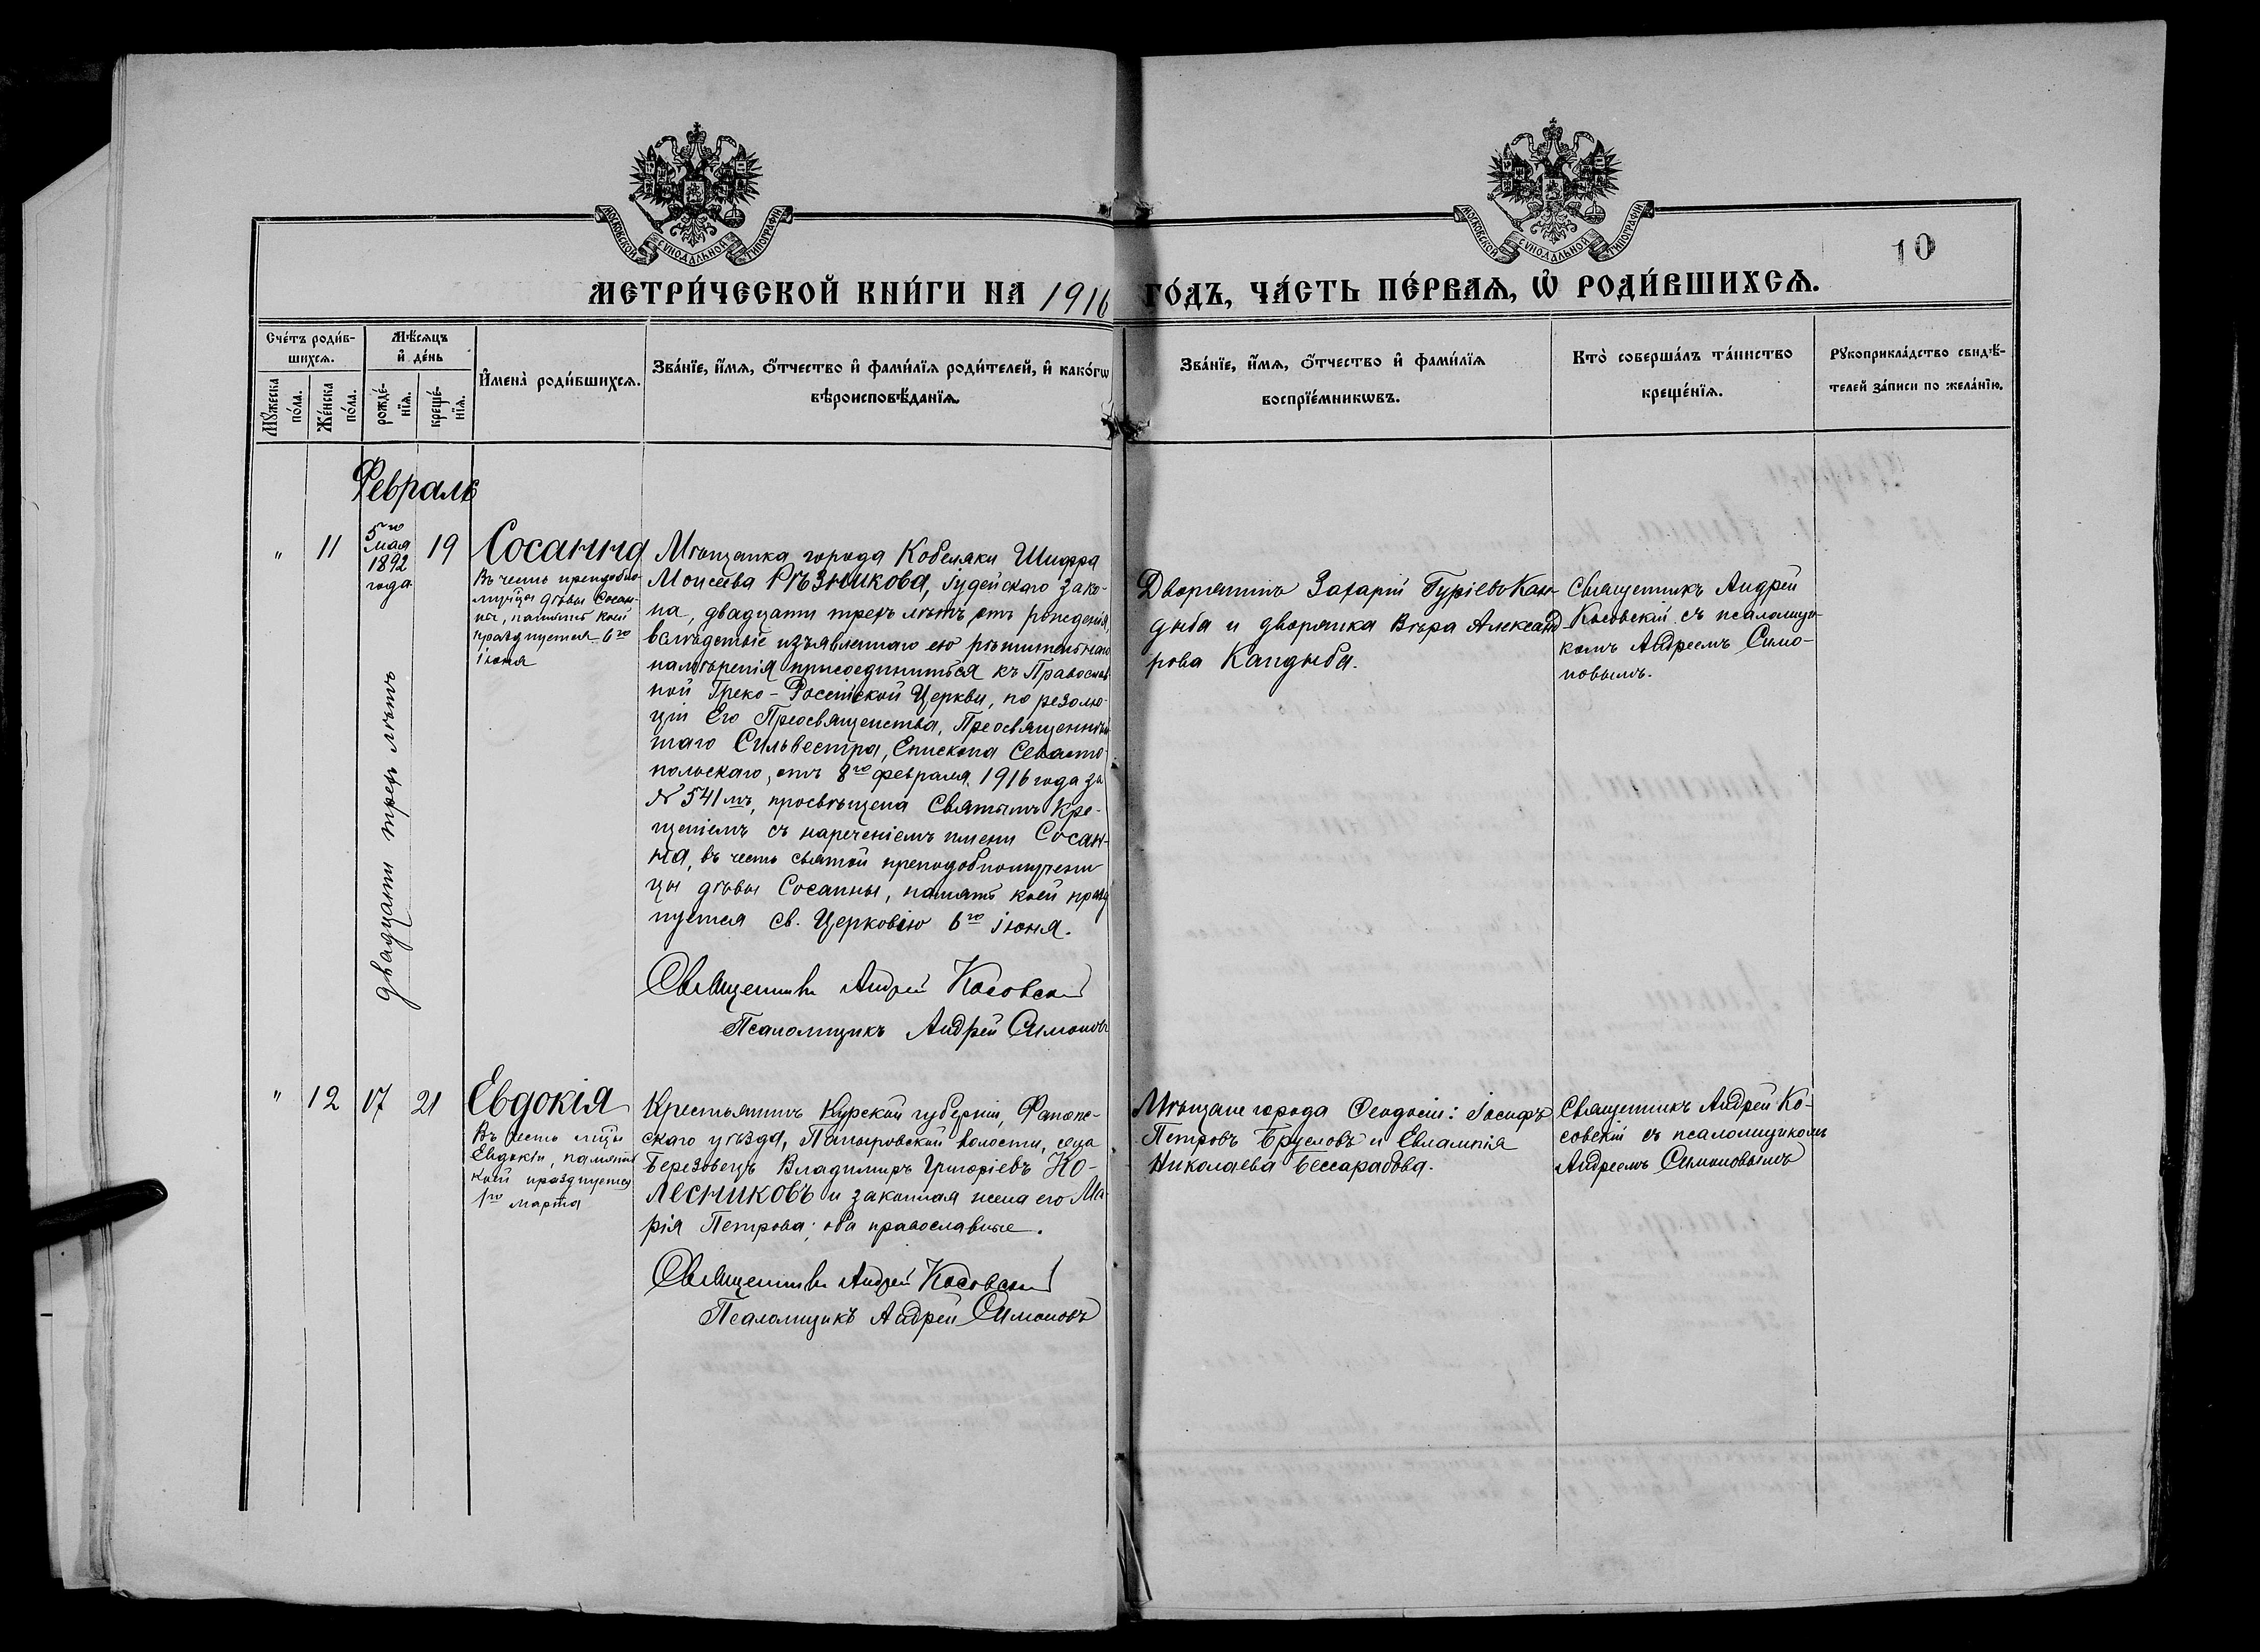 МОСКОВСКОЙ СѴНОДАЛЬНОЙ ТИПОГРАФІИ
МОСКОВСКОЙ СѴНОДАЛЬНОЙ ТИПОГРАФІИ
10
МЕТРИ́ЧЕСКОЙ КНИ́ГИ НА 1916 ГО́ДЪ, ЧА́СТЬ ПЕ́РВАѦ, Ѡ҆ РОДИ́ВШИХСѦ.
Сче́тъ роди́в-
шихсѧ.
Мꙋ́жеска
по́ла.
Же́нска
по́ла.
Мѣ́сѧцъ
и҆ де́нь
рожде́-
нїѧ.
креще́-
нїѧ.
И҆мена̀ роди́вшихсѧ.
Зва́нїе, и҆́мѧ, ѻ҆́тчество и҆ фами́лїѧ роди́телей, и҆ како́гѡ
вѣроисповѣ́данїѧ.
Зва́нїе, и҆́мѧ, ѻ҆́тчество и҆ фами́лїѧ
воспрїе́мникѡвъ.
Кто̀ соверша́лъ та́инство
креще́нїѧ.
Рꙋкоприкла́дство свидѣ́-
телей за́писи по жела́нїю.
Февраль
" 11
5го
мая
1892
года
19
двадцати трехъ лѣтъ
Сосанна
Въ честь преподобно-
мучцы дѣвы Сосан-
ны, память коей
празднуется 6го
іюня
Мѣщанка города Кобеляки Шифра
Моисеева Рѣзникова, іудейскаго зако-
на, двадцати трехъ лѣтъ отъ рожденія,
вслѣдствіе изъявленнаго ею рѣшительнаго
намѣренія присоединиться къ Православ
ной Греко-Россійской Церкви, по резолю-
ціи Его Преосвященства, Преосвященнѣй
шаго Сильвестра, Епископа Севасто-
польскаго, отъ 8го февраля 1916 года за
№ 541мъ, просвѣщена Святымъ Кре-
щеніемъ съ нареченіемъ имени Сосан-
на, въ честь святой преподобномучени
цы дѣвы Сосанны, память коей празд
нуется св. Церковію 6го іюня.
Священникъ Андрей Косовскій
Псаломщикъ Андрей Симоновъ
Дворянинъ Захарій Гуріевъ Кан-
дыба и дворянка Вѣра Александ
рова Кандыба.
Священникъ Андрей
Косовскій съ псаломщи-
комъ Андреемъ Симо-
новымъ.
" 12 17 21
Евдокія
Въ честь мцы
Евдокіи, память
коей празднуется
1го марта
Крестьянинъ Курской губерніи, Фатеж-
скаго уѣзда, волости, села
Березовецъ Владимиръ Григоріевъ Ко-
лесниковъ и законная жена его Ма-
рія Петрова; оба православные.
Священникъ Андрей Косовскій
Псаломщикъ Андрей Симоновъ
Мѣщане города Ѳеодосіи: Іосифъ
Петровъ Брусловъ и Евлампія
Николаева Бессарабова.
Священникъ Андрей Ко-
совскій съ псаломщикомъ
Андреемъ Симоновымъ